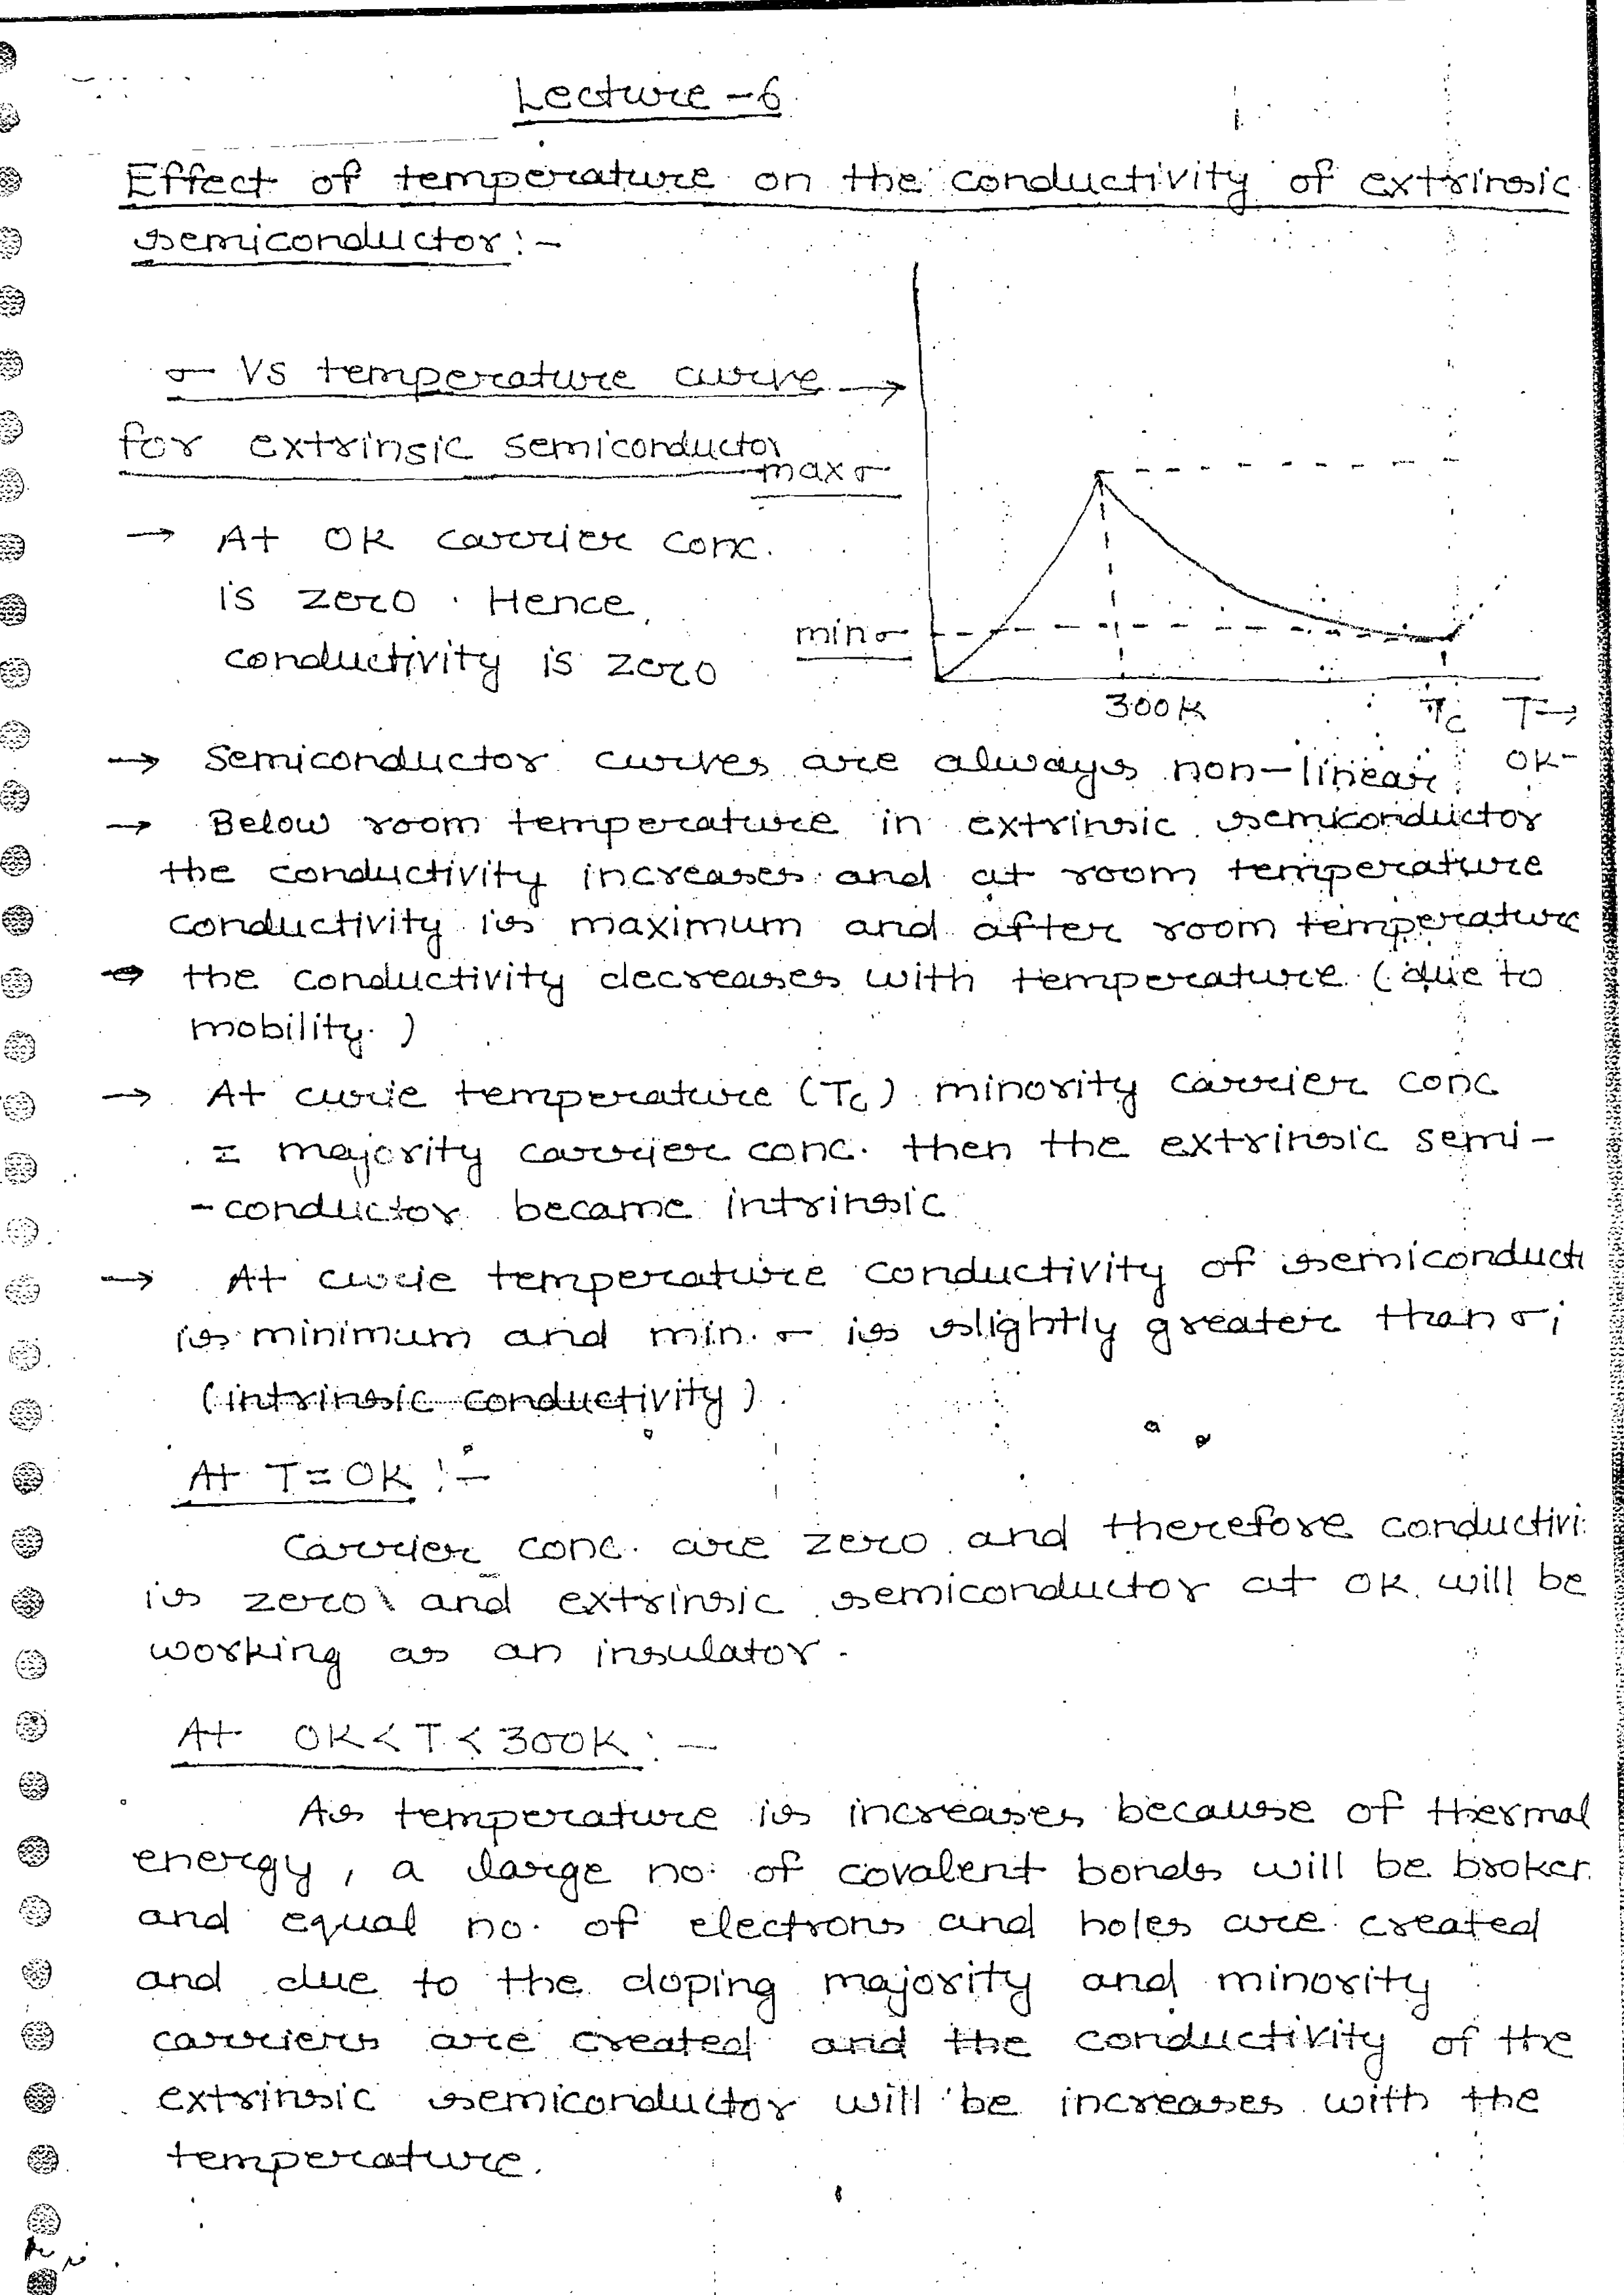 Lecture-6
Effect of temperature on the conductivity of extrinsic
semiconductor:-
σ Vs temperature curve →
for extrinsic semiconductor
max σ
→ At 0K carrier conc.
is zero. Hence,
conductivity is zero
min σ
300K
Tc T→
→ Semiconductor curves are always non-linear. 0K-
→ Below room temperature in extrinsic semiconductor
the conductivity increases and at room temperature
conductivity is maximum and after room temperature
→ the conductivity decreases with temperature (due to
mobility.)
→ At curie temperature (Tc) minority carrier conc
= majority carrier conc. then the extrinsic semi-
-conductor became intrinsic
→ At curie temperature conductivity of semiconduct
is minimum and min. σ is slightly greater than σi
(intrinsic conductivity).
At T=0K :-
Carrier conc. are zero and therefore conductivi
is zero and extrinsic semiconductor at 0K will be
working as an insulator.
At 0K<T<300K :-
As temperature is increases because of thermal
energy, a large no. of covalent bonds will be broken
and equal no. of electrons and holes are created
and due to the doping majority and minority
carriers are created and the conductivity of the
extrinsic semiconductor will be increases with the
temperature.